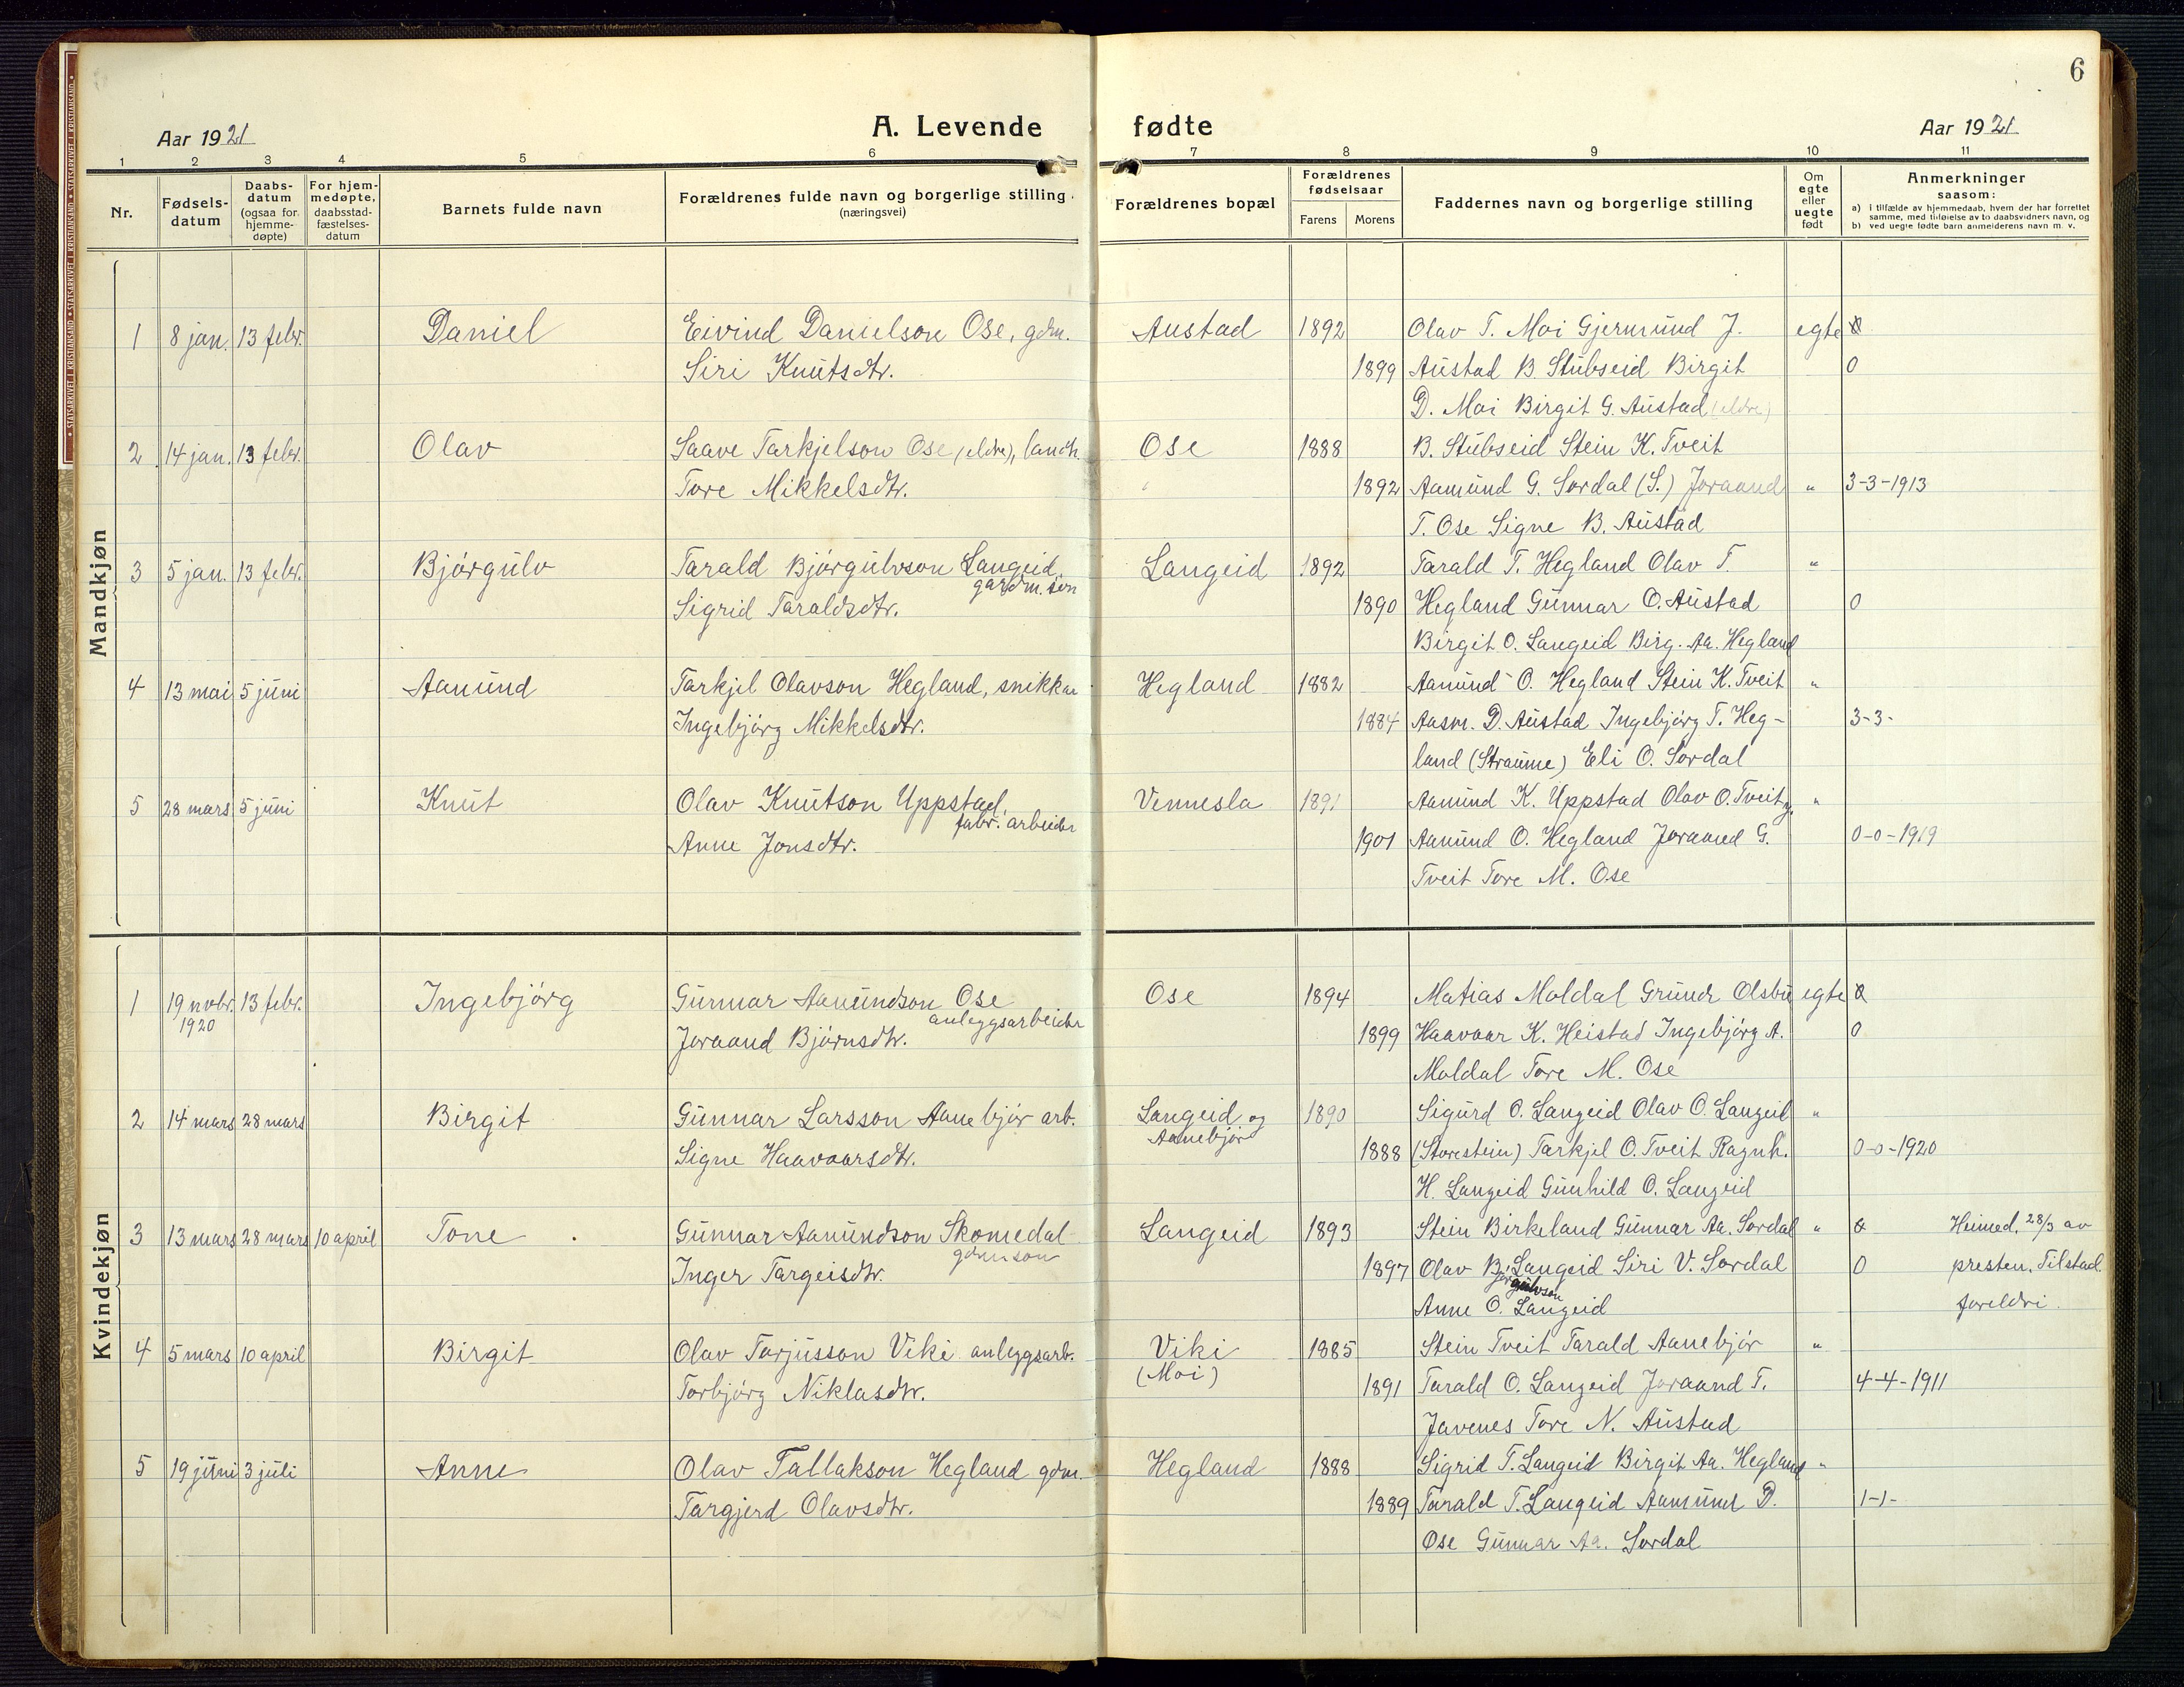 6
Aar 1921 A. Levende fødte Aar 1921
1 2 3 4 5 6 7 8 9 10 11
Nr. Fødsels-datum Daabs-datum (ogsaa for hjemme-døpte) For hjem-medøpte, daabsstad-fæstelses-datum Barnets fulde navn Forældrenes fulde navn og borgerlige stilling (næringsvei) Forældrenes bopæl Forældrenes fødselsaar Farens Morens Faddernes navn og borgerlige stilling Om egte eller uegte født Anmerkninger saasom: a) i tilfælde av hjemmedaab, hvem der har forrettet samme, med tilføielse av to daabsvidners navn, og b) ved uegte fødte barn anmelderens navn m. v.
Mandkjøn
1 8 jan. 13 febr. Daniel Eivind Danielson Ose, gdm. Austad 1892 Olav T. Moi Gjermund J. egte
Siri Knutsdtr. 1899 Austad B. Stubseid Birgit 0
D. Moi Birgit G. Austad (eldre)
2 14 jan. 13 febr. Olav Saave Tarkjelson Ose (eldre), landh. Ose 1888 B. Stubseid Stein K. Tveit
Tore Mikkelsdtr. 1892 Aamund G. Sordal (S.) Joraand " 3-3-1913
T. Ose Signe B. Austad
3 5 jan. 13 febr. Bjørgulv Tarald Bjørgulvson Langeid, Langeid 1892 Tarald T. Hegland Olav T. "
gardm. son
Sigrid Taraldsdtr. 1890 Hegland Gunnar O. Austad 0
Birgit O. Langeid Birg. Aa. Hegland
4 13 mai 5 juni Aamund Tarkjel Olavson Hegland, snikkar Hegland 1882 Aamund O. Hegland Stein K. Tveit "
Ingebjørg Mikkelsdtr. 1884 Aasm. D. Austad Ingebjørg T. Heg- 3-3-
land (Straume) Eli O. Sordal
5 28 mars 5 juni Knut Olav Knutson Uppstad, Vennesla 1891 Aamund K. Uppstad Olav O. Tveit "
fabr. arbeider
Anne Jonsdtr. 1901 Aamund O. Hegland Joraand G. 0-0-1919
Tveit Tore M. Ose
Kvindekjøn
1 19 novbr. 13 febr. Ingebjørg Gunnar Aamundson Ose Ose 1894 Matias Moldal Grunde Olsbu egte
1920 anleggsarbeider
Joraand Bjørnsdtr. 1899 Haavaar K. Heistad Ingebjørg A. 0
Moldal Tore M. Ose
2 14 mars 28 mars Birgit Gunnar Larsson Aanebjør arb. Langeid og 1890 Sigurd O. Langeid Olav O. Langeid "
Aanebjør
Signe Haavaarsdtr. 1888 (Storestein) Tarkjel O. Tveit Ragnh. 0-0-1920
H. Langeid Gunhild O. Langeid
3 13 mars 28 mars 10 april Tone Gunnar Aamundson Skomedal Langeid 1893 Stein Birkeland Gunnar Aa. Sordal " Heimed. 28/3 av
gdmson
Inger Targeisdtr. 1897 Olav Bjørgulvson Langeid Siri V. Sordal 0 presten. Tilstad.
Anne O. Langeid foreldri.
4 5 mars 10 april Birgit Olav Torjusson Viki anleggsarb. Viki 1885 Stein Tveit Tarald Aanebjør "
(Moi)
Torbjørg Niklasdtr. 1891 Tarald O. Langeid Joraand T. 4-4-1911
Javenes Tore N. Austad
5 19 juni 3 juli Anne Olav Tallakson Hegland gdm. Hegland 1888 Sigrid T. Langeid Birgit Aa. Hegland "
Targjerd Olavsdtr. 1889 Tarald T. Langeid Aamund D. 1-1-
Ose Gunnar Aa. Sordal